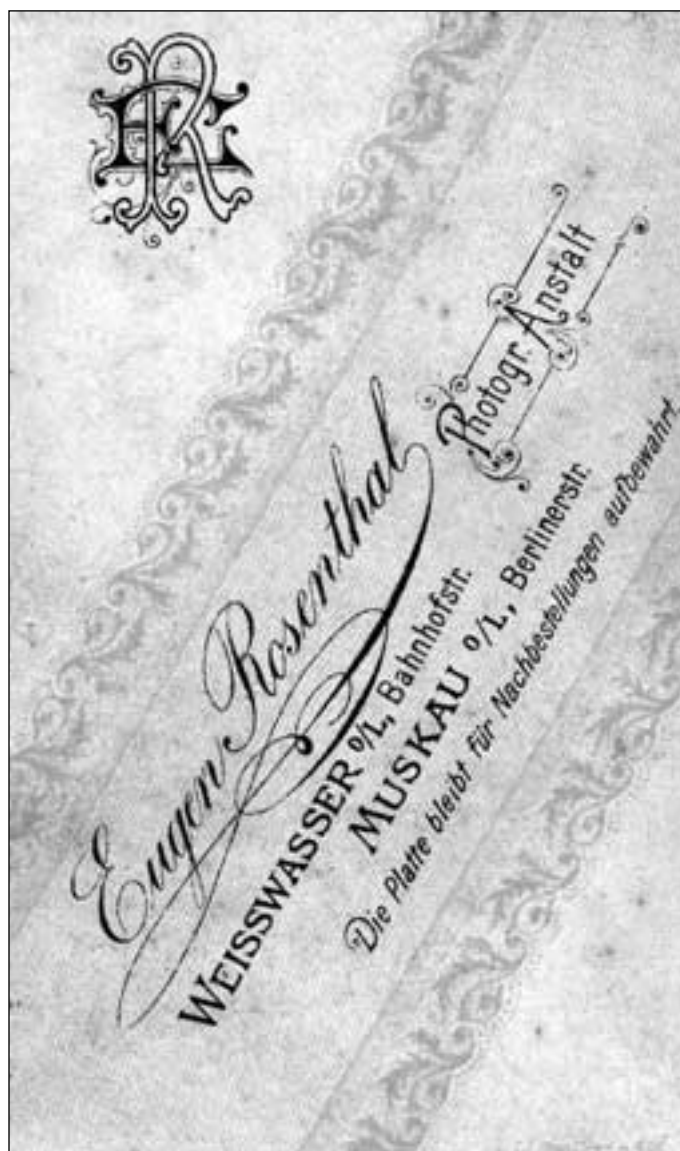 ER
Eugen Rosenthal
Photogr. Anstalt
WEISSWASSER O/L, Bahnhofstr.
MUSKAU O/L., Berlinerstr.
Die Platte bleibt für Nachbestellungen aufbewahrt.